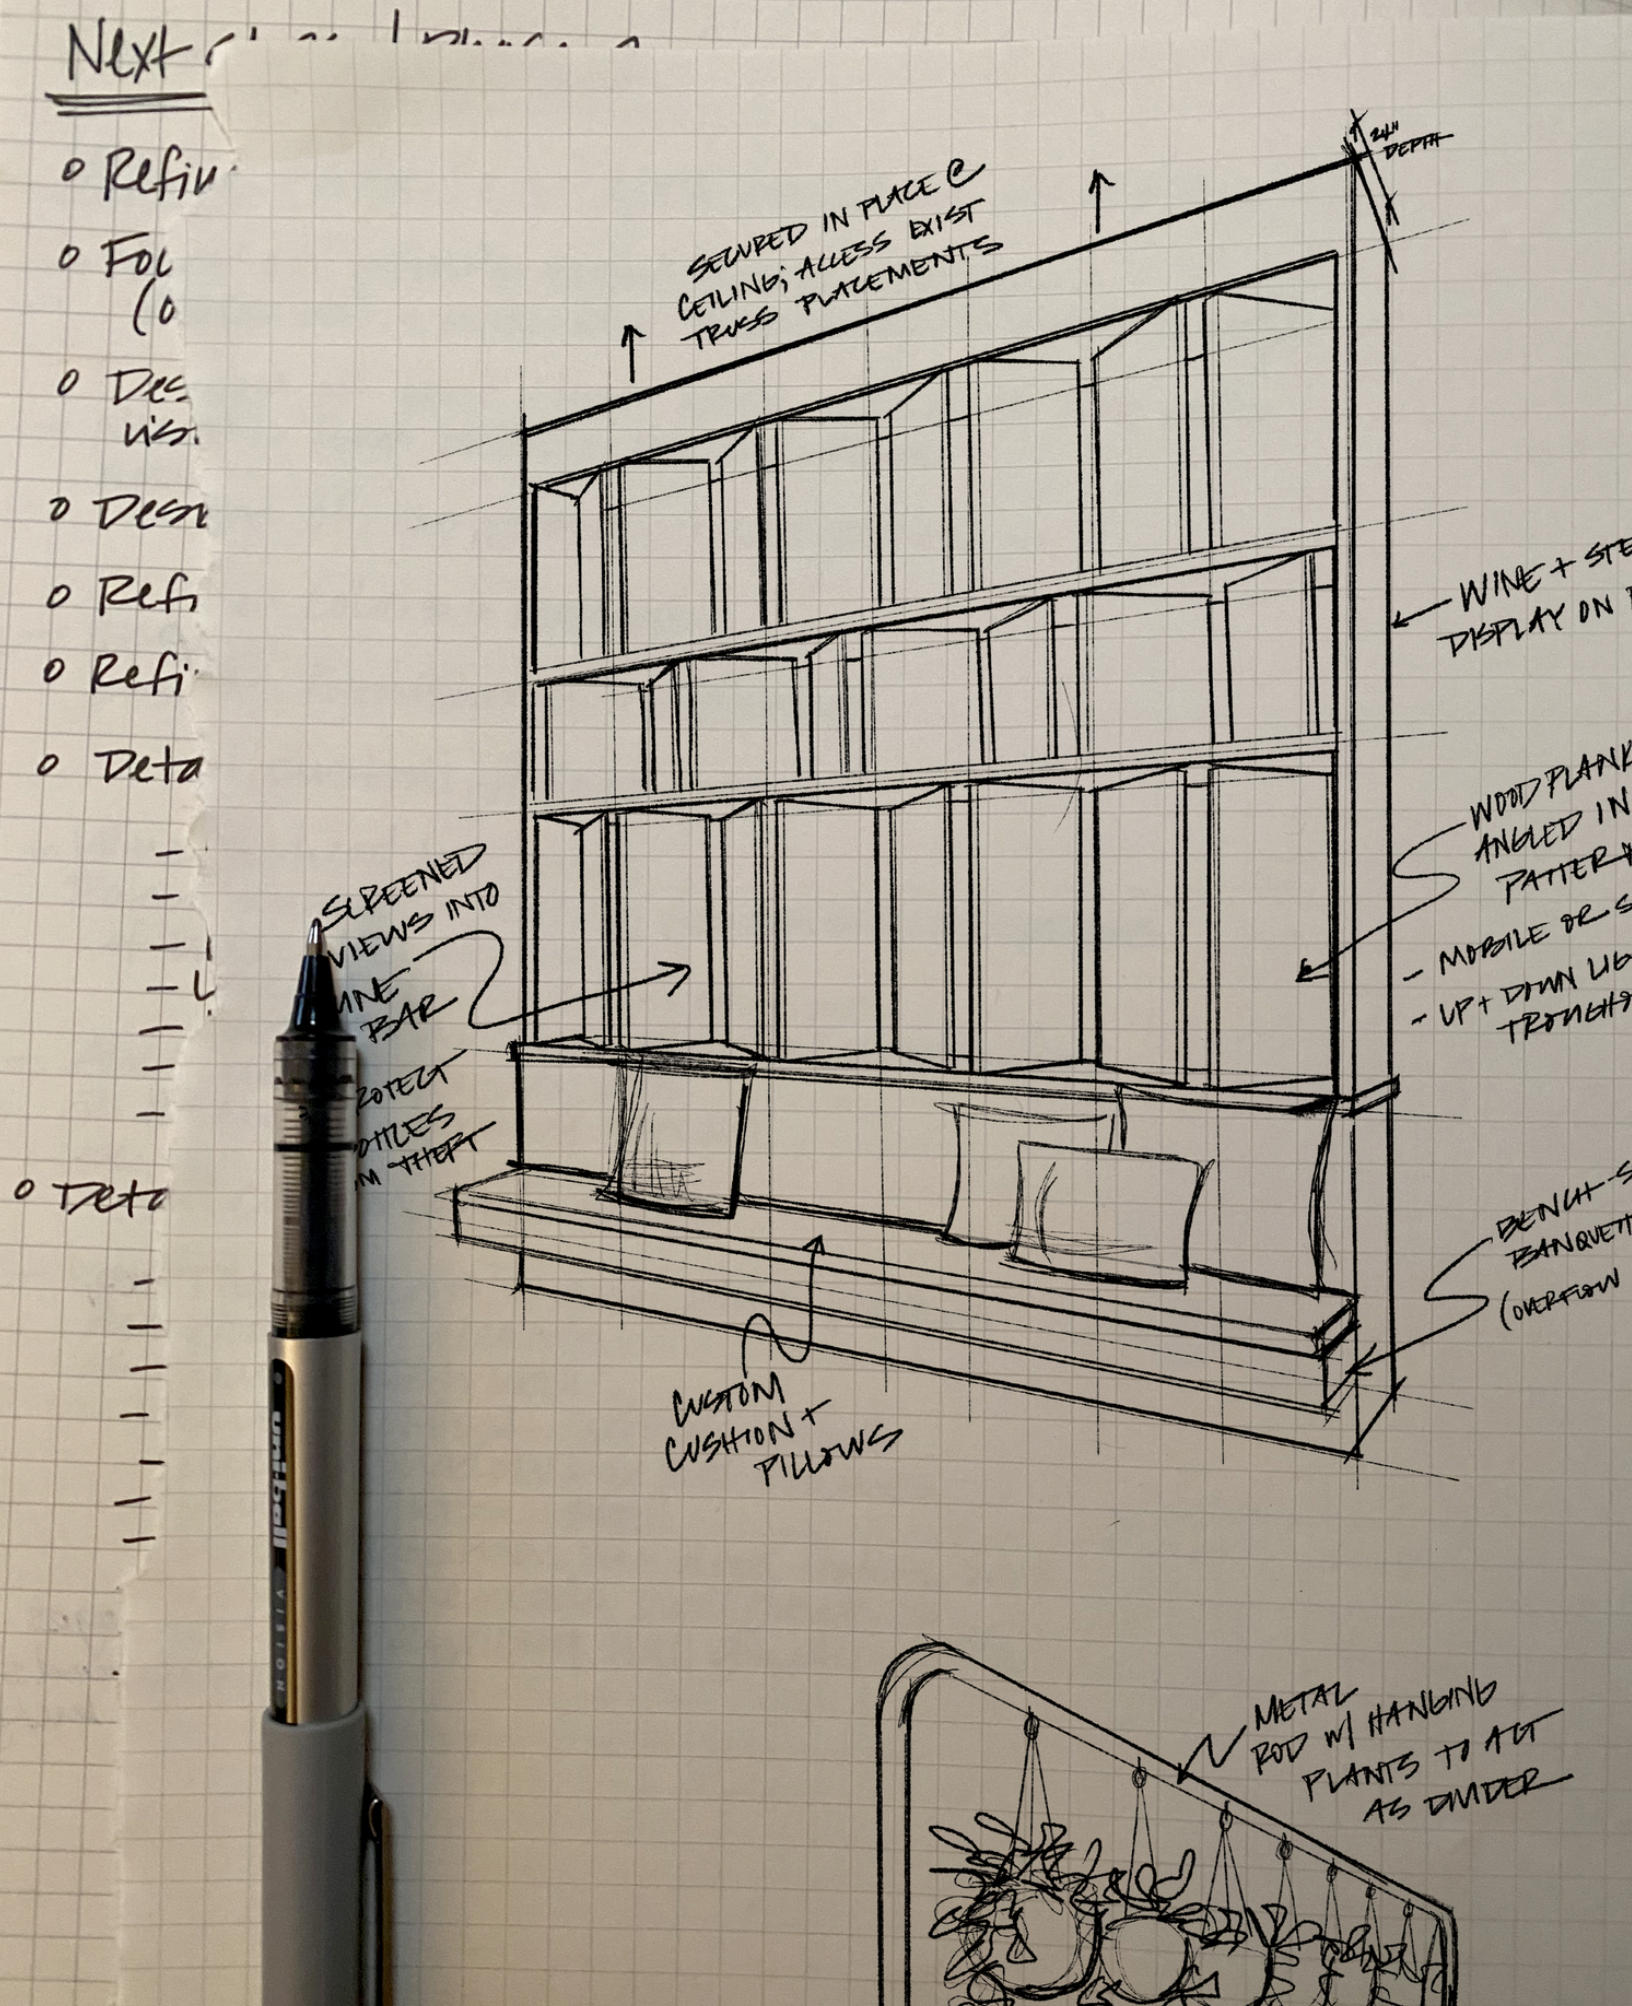 Next
o Refin
o Foc
(o
o Des
vis.
o Desi
o Refi
o Refi
o Deta
o Deta
24"
DEPTH
SECURED IN PLACE @
CEILING; ACCESS EXIST
TRUSS PLACEMENTS
WINE + STE
DISPLAY ON
WOOD PLANK
ANGLED IN
PATTERN
- MOBILE OR S
- UP + DOWN LIG
TROUGHS
SCREENED
VIEWS INTO
WINE
BAR
PROTECT
BOTTLES
FROM THEFT
BENCH-S
BANQUETT
(OVERFLOW
CUSTOM
CUSHION +
PILLOWS
uniball
VISION
METAL
ROD W/ HANGING
PLANTS TO ACT
AS DIVIDER